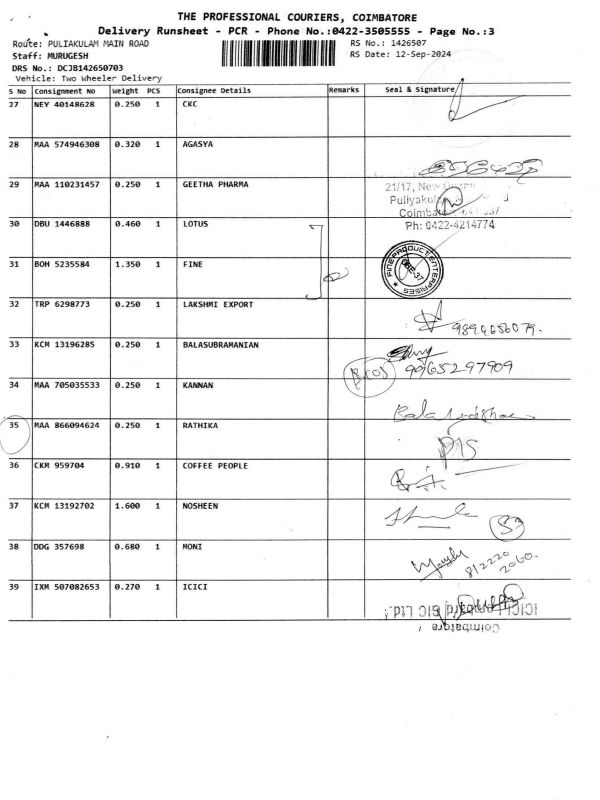 THE PROFESSIONAL COURIERS, COIMBATORE
Delivery Runsheet - PCR - Phone No.:0422-3505555 - Page No.:3
Route: PULIAKULAM MAIN ROAD RS No.: 1426507
Staff: MURUGESH RS Date: 12-Sep-2024
DRS No.: DCJB142650703
Vehicle: Two Wheeler Delivery
S No Consignment No Weight PCS Consignee Details Remarks Seal & Signature
27 NEY 40148628 0.250 1 CKC
28 MAA 574946308 0.320 1 AGASYA
29 MAA 110231457 0.250 1 GEETHA PHARMA
21/17, New
Puliyakul
Coimbat
30 DBU 1446888 0.460 1 LOTUS Ph: 0422-4214774
31 BOH 5235584 1.350 1 FINE
FINE PRODUCT ENTERPRISES
32 TRP 6298773 0.250 1 LAKSHMI EXPORT
9894686079.
33 KCM 13196285 0.250 1 BALASUBRAMANIAN
9965297909
34 MAA 705035533 0.250 1 KANNAN
35 MAA 866094624 0.250 1 RATHIKA
36 CKM 959704 0.910 1 COFFEE PEOPLE
37 KCM 13192702 1.600 1 NOSHEEN
38 DDG 357698 0.680 1 MONI
812220
2060.
39 IXM 507082653 0.270 1 ICICI
ICICI Lombard GIC Ltd.
Coimbatore